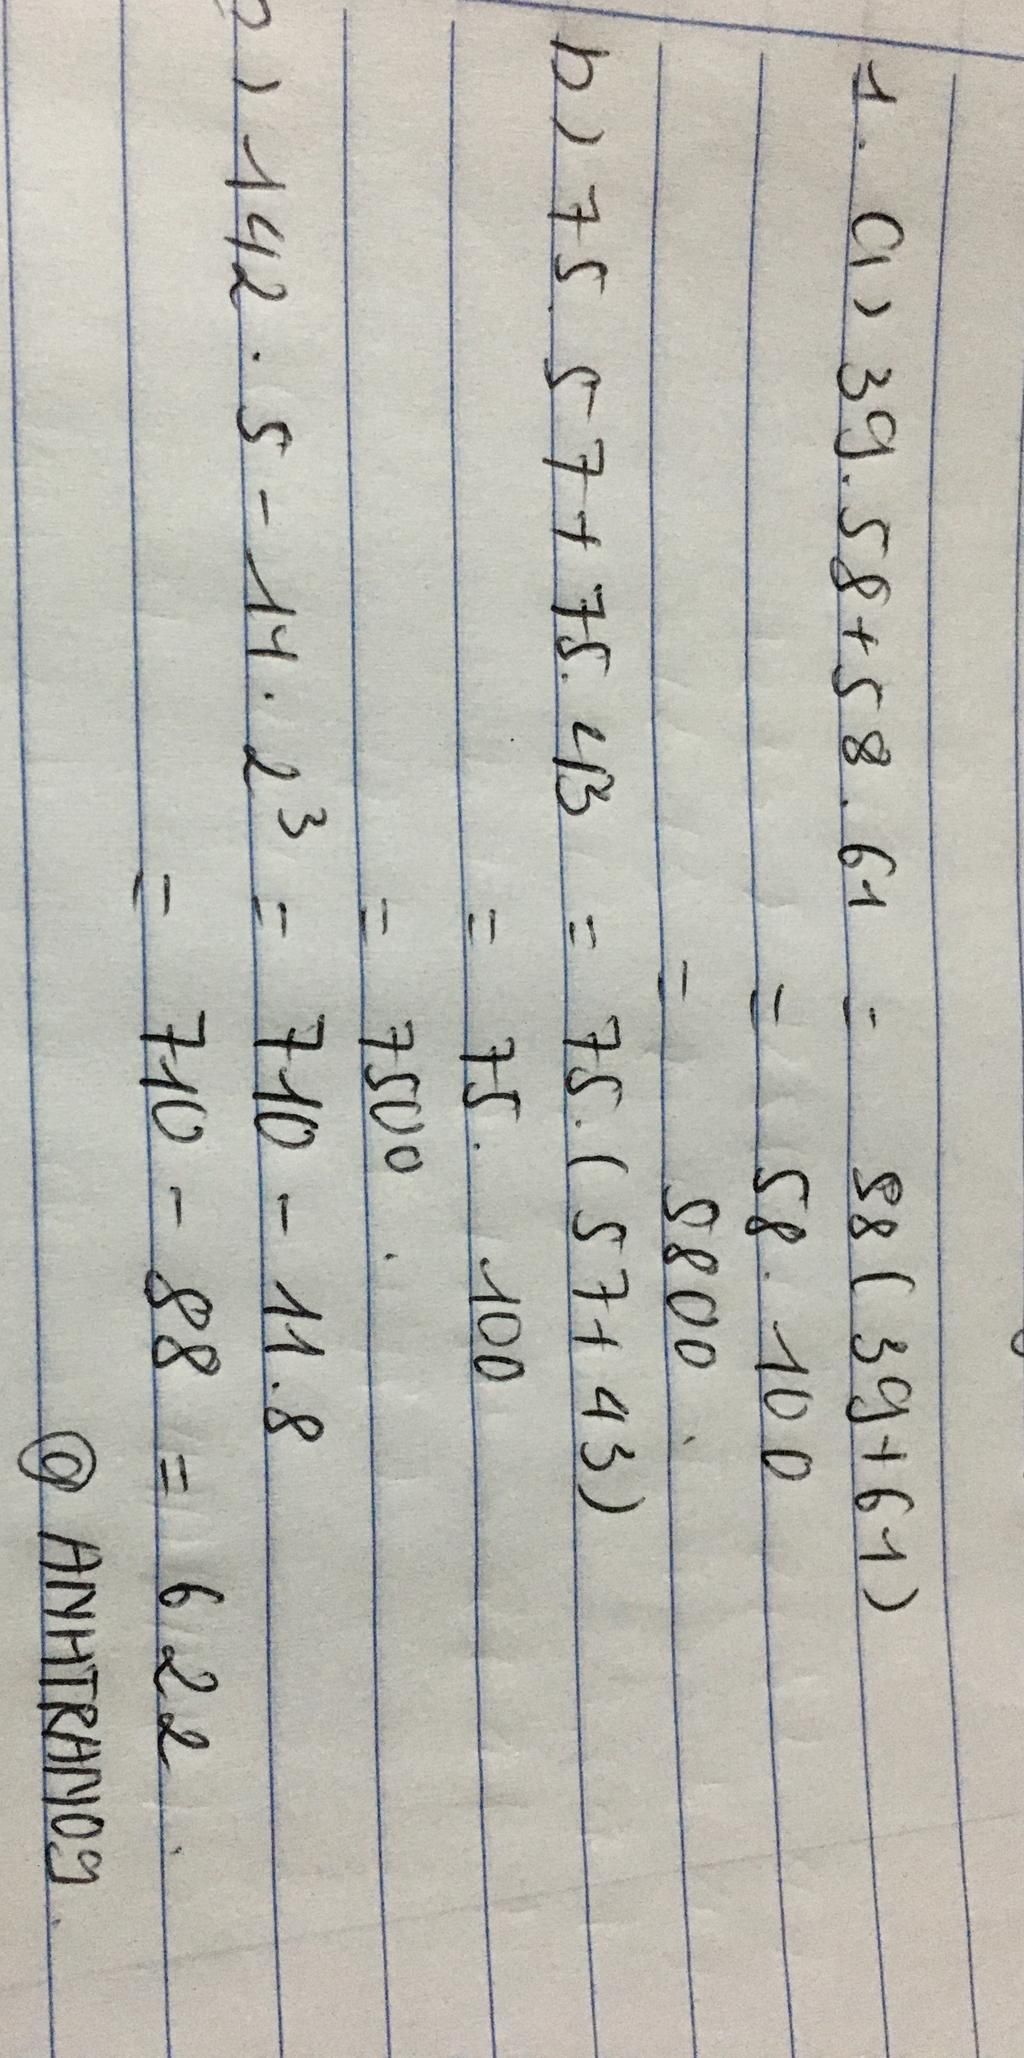 1. a, 39.58+58.61 = 58(39+61)
= 58.100
= 5800.
b, 75.57+75.43 = 75.(57+43)
= 75.100
= 7500.
, 142.5-11.2³ = 710-11.8
= 710-88 = 622.
@ANHTRAN109.